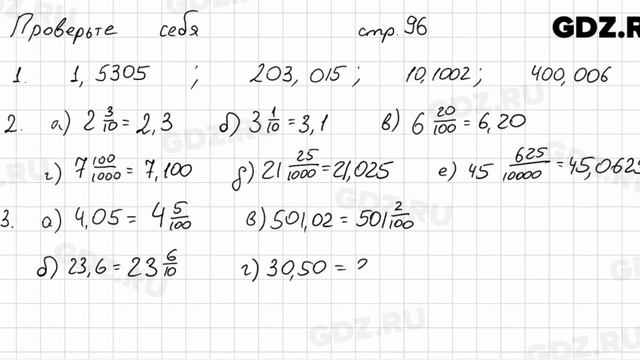 Проверьте себя стр. 96 GDZ.R
1. 1,5305 ; 203,015 ; 10,1002 ; 400,006
2. а) 2 3/10 = 2,3 б) 3 1/10 = 3,1 в) 6 20/100 = 6,20
г) 7 100/1000 = 7,100 д) 21 25/1000 = 21,025 е) 45 625/10000 = 45,0625
3. а) 4,05 = 4 5/100 в) 501,02 = 501 2/100
б) 23,6 = 23 6/10 г) 30,50 =